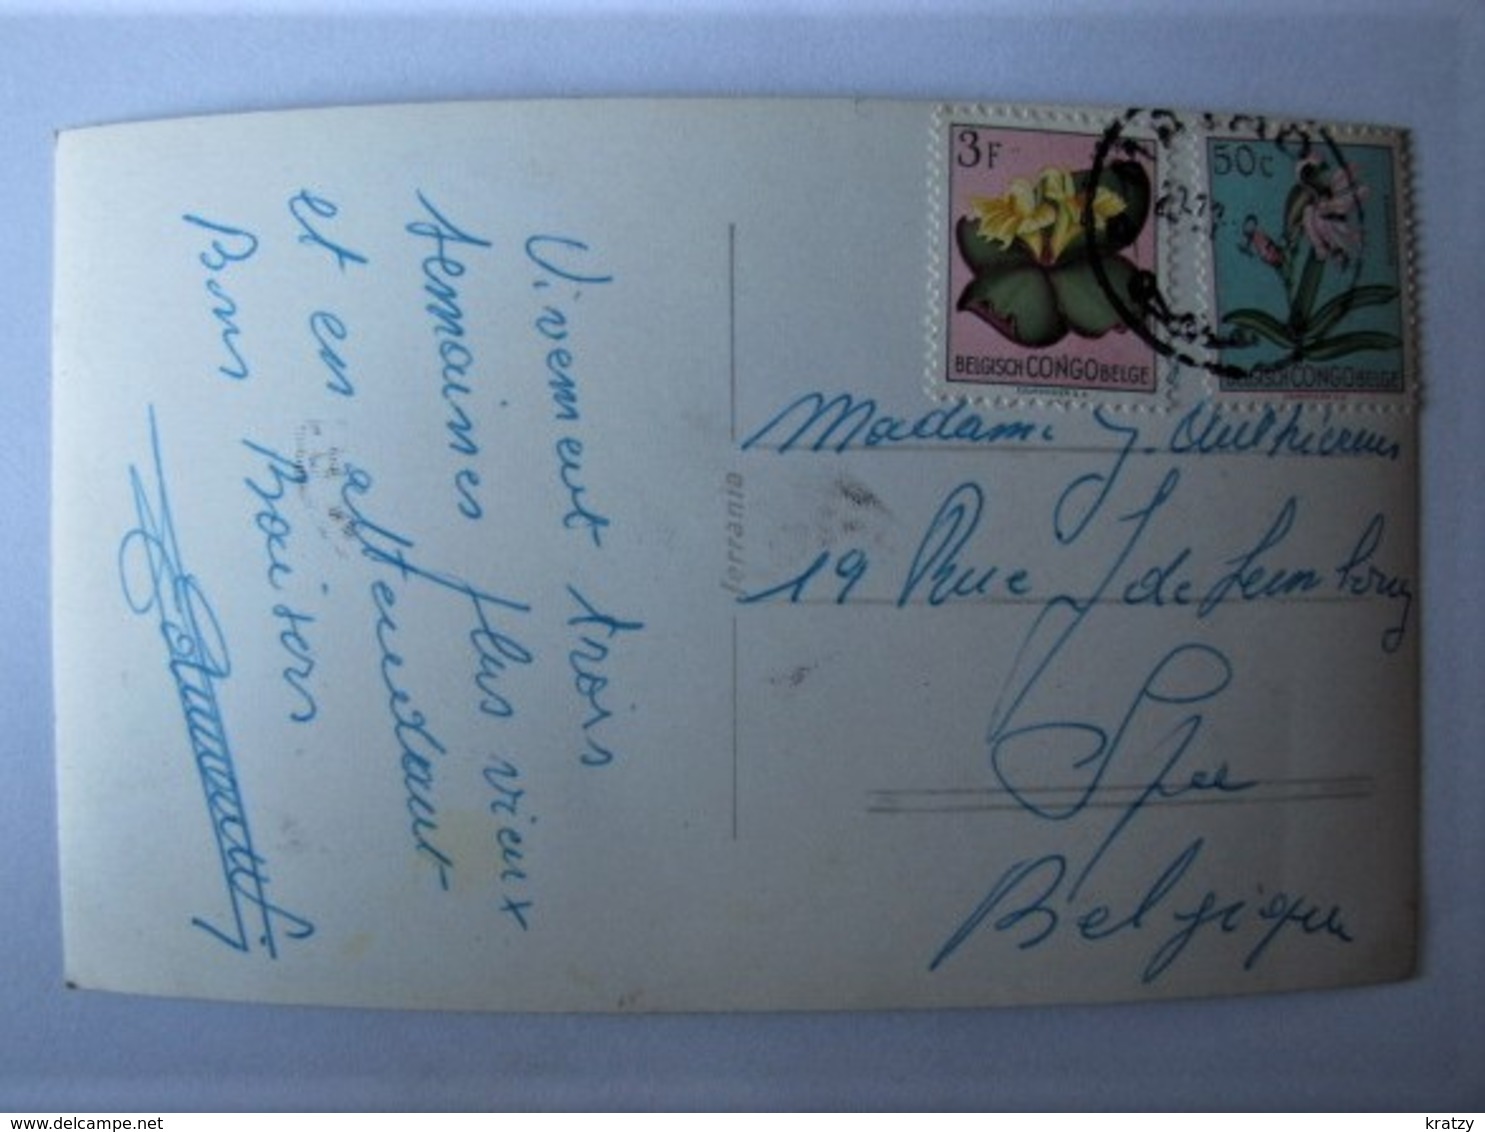 Vivement trois
semaines plus vieux
et en attendant
Bons Baisers
ferrania
3F
BELGISCH CONGO BELGE
50c
BELGISCH CONGO BELGE
Madame J.
19 Rue de
Spa
Belgique
www.delcampe.net
kratzy